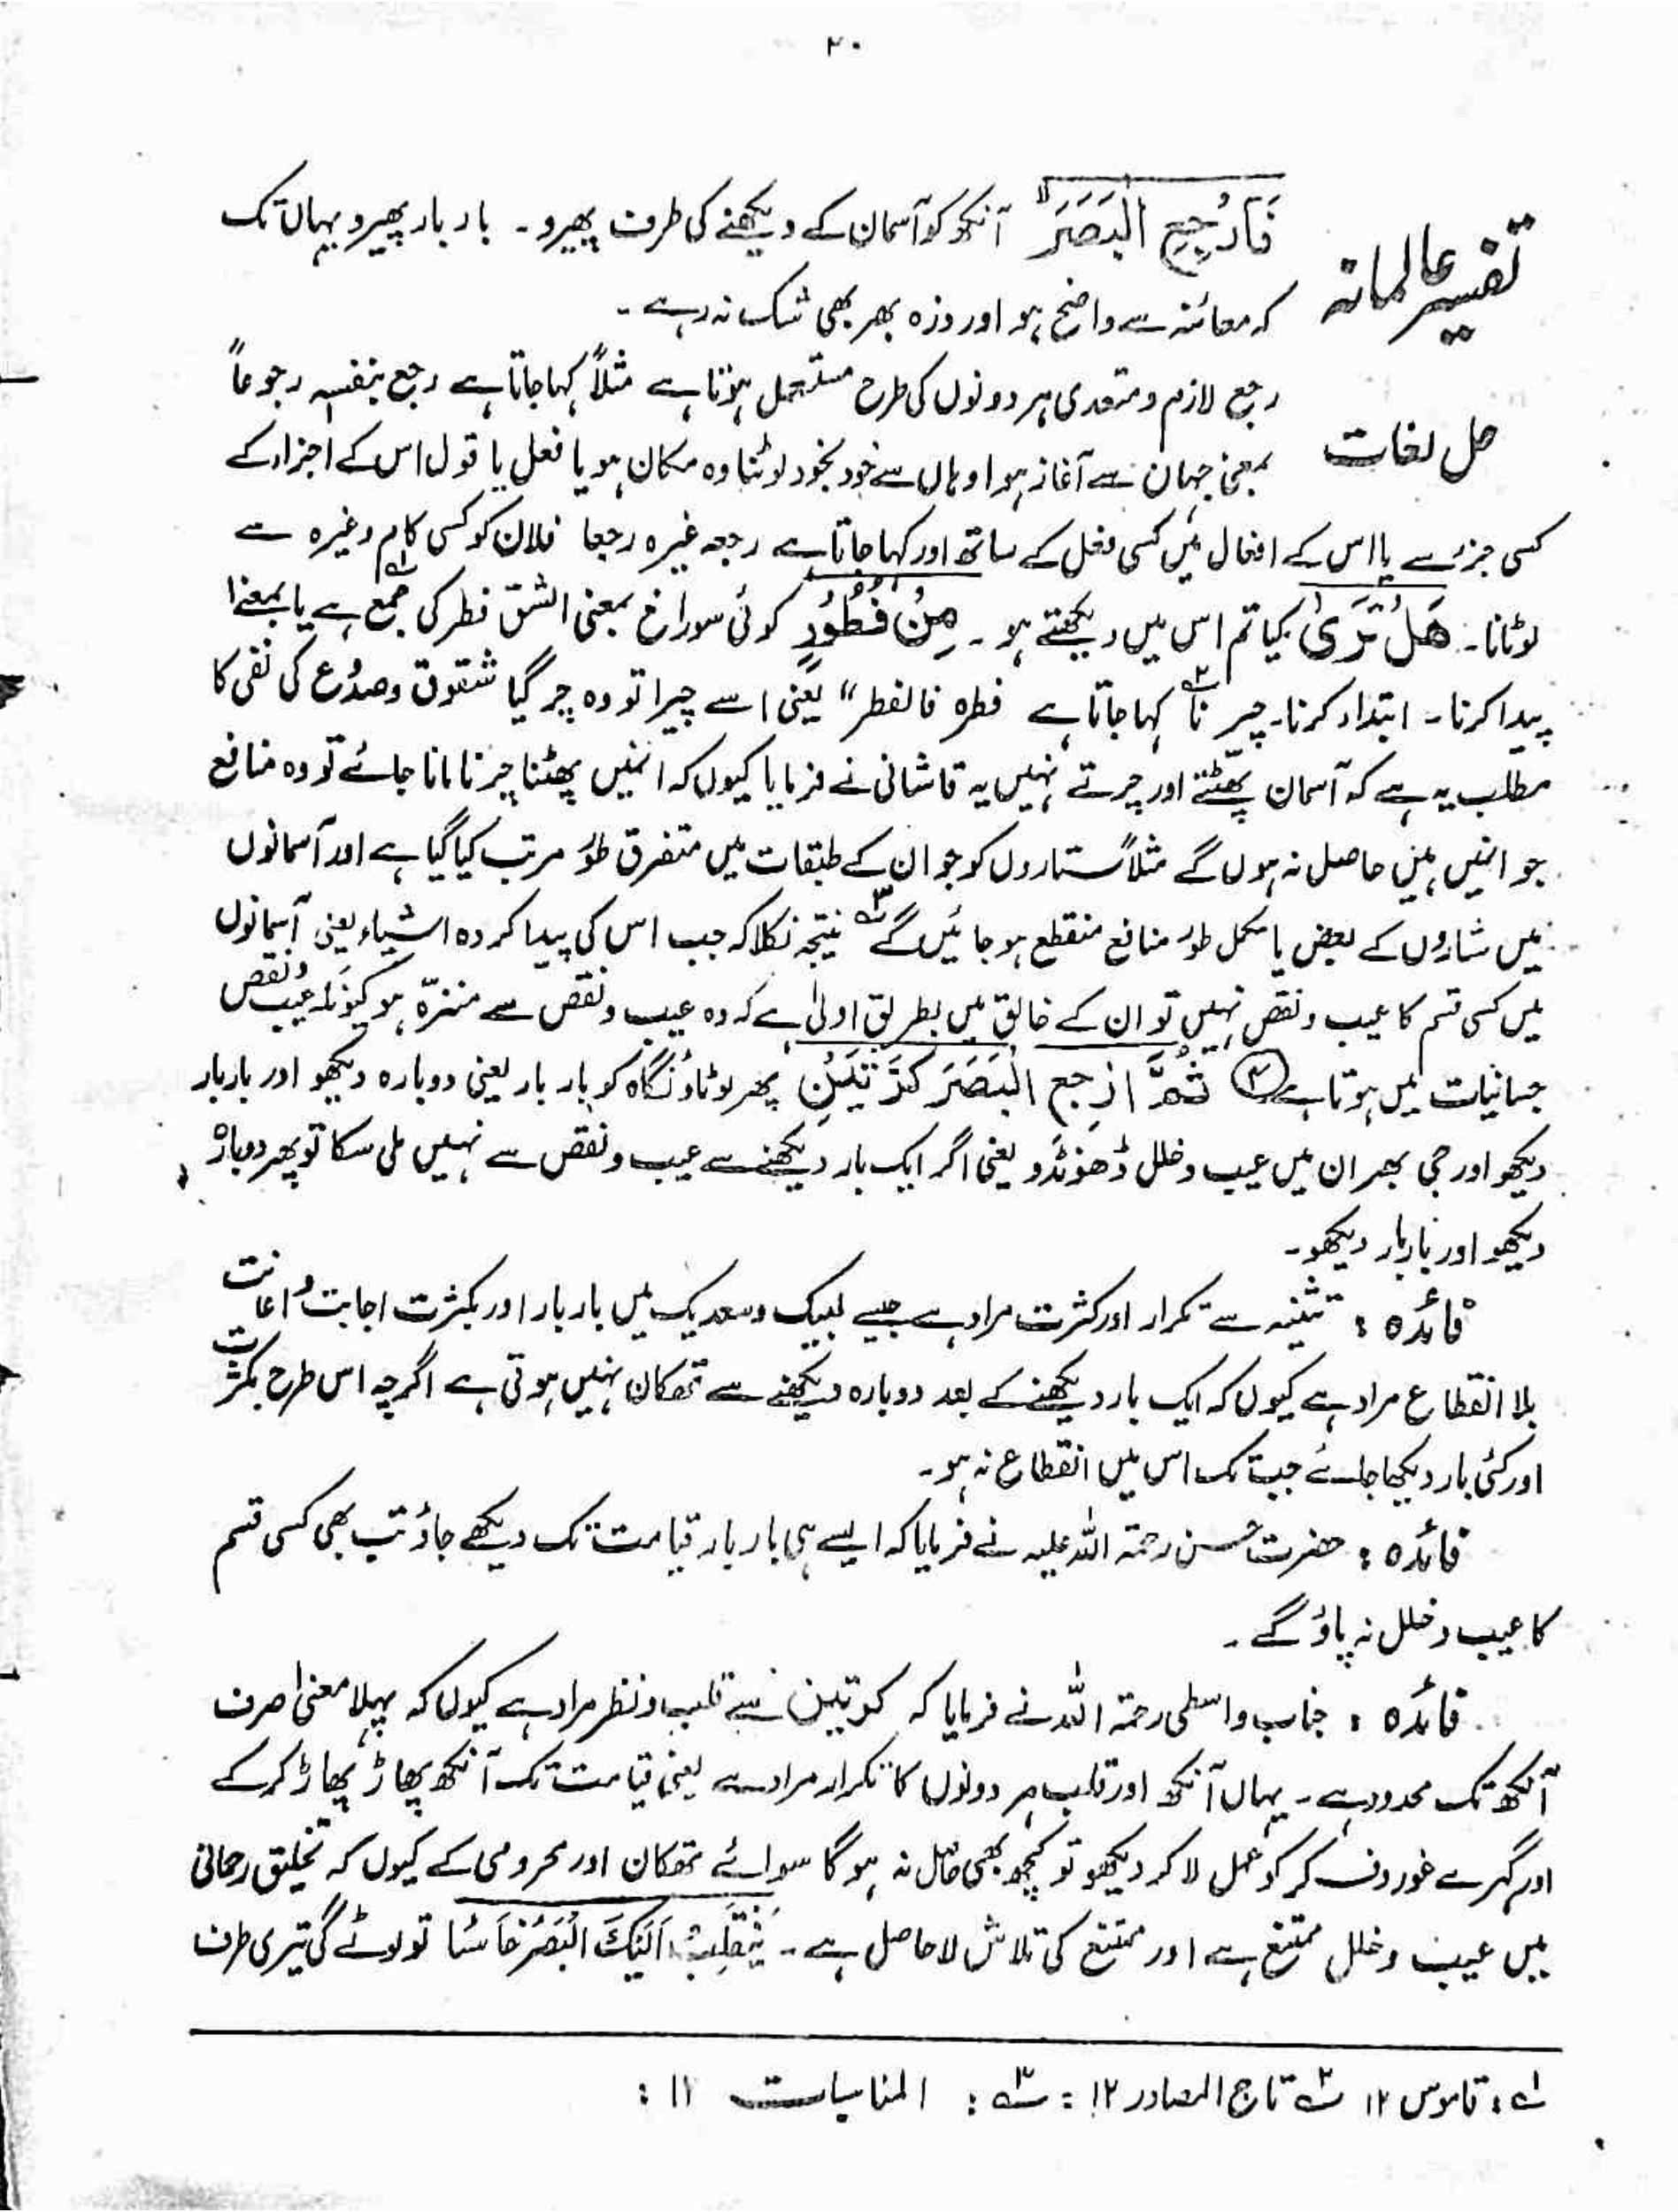 ۲۰
تفسیر عالمانہ
فَارْجِعِ الْبَصَرَ آنکھ کو آسمان کے دیکھنے کی طرف پھیرو ۔ بار بار پھیرو یہاں تک
کہ معائنہ سے واضح ہو اور ذرہ بھر بھی شک نہ رہے ۔
حل لغات
رجع لازم و متعدی ہر دونوں کی طرح مستعمل ہوتا ہے مثلاً کہا جاتا ہے رجع بنفسہ رجوعاً
بمعنٰی جہان سے آغاز ہوا وہاں سے خود بخود لوٹنا وہ مکان ہو یا فعل یا قول اس کے اجزاء کے
کسی جزء سے یا اس کے افعال میں کسی فعل کے ساتھ اور کہا جاتا ہے رجعہ غیرہ رجعا فلان کو کسی کام وغیرہ سے
لوٹانا ۔ هَلْ تَرٰی کیا تم اس میں دیکھتے ہو ۔ مِنْ فُطُوْرٍ کوئی سوراخ بمعنی الشق فطر کی جمع ہے یا بمعنٰے
پیدا کرنا ۔ ابتداء کرنا ۔ چیرنا کہا جاتا ہے فطرہ فانفطر“ یعنی اسے چیرا تو وہ چر گیا شقوق و صدُوع کی نفی کا
مطلب یہ ہے کہ آسمان پھٹتے اور چرتے نہیں یہ قاشانی نے فرمایا کیوں کہ انہیں پھٹنا چرنا مانا جائے تو وہ منافع
جو انہیں ہیں حاصل نہ ہوں گے مثلاً ستاروں کو جو ان کے طبقات میں متفرق طور مرتب کیا گیا ہے اور آسمانوں
میں ستاروں کے بعض یا مکمل طور منافع منقطع ہو جائیں گے ۳؎ نتیجہ نکلا کہ جب اس کی پیدا کردہ اشیاء یعنی آسمانوں
میں کسی قسم کا عیب و نقص نہیں تو ان کے خالق میں بطریق اولٰی ہے کہ وہ عیب و نقص سے منزّہ ہو کیونکہ عیب و نقص
جسمانیات میں ہوتا ہے ۴ ثُمَّ ارْجِعِ الْبَصَرَ كَرَّتَيْنِ پھر لوٹاؤ نگاہ کو بار بار یعنی دوبارہ دیکھو اور بار بار
دیکھو اور جی بھر ان میں عیب و خلل ڈھونڈو یعنی اگر ایک بار دیکھنے سے عیب و نقص سے نہیں مل سکا تو پھر دوبارہ
دیکھو اور باربار دیکھو ۔
فائدہ : تثنیہ سے تکرار اور کثرت مراد ہے جیسے لبیک وسعدیک میں بار بار اور بکثرت اجابت و اعانت
بلا انقطاع مراد ہے کیوں کہ ایک بار دیکھنے کے بعد دوبارہ دیکھنے سے تھکان نہیں ہوتی ہے اگرچہ اس طرح بکثرت
اور کئی بار دیکھا جائے جب تک اس میں انقطاع نہ ہو ۔
فائدہ : حضرت حسن رحمۃ اللہ علیہ نے فرمایا کہ ایسے ہی بار بار قیامت تک دیکھے جاؤ تب بھی کسی قسم
کا عیب و خلل نہ پاؤ گے ۔
فائدہ : جناب واسطی رحمۃ اللہ نے فرمایا کہ کرتین سے قلب و نظر مراد ہے کیوں کہ پہلا معنٰی صرف
آنکھ تک محدود ہے ۔ یہاں آنکھ اور قلب ہر دونوں کا تکرار مراد ہے یعنی قیامت تک آنکھ پھاڑ پھاڑ کر کے
اور گہرے غور و فکر کو عمل لا کر دیکھو تو کچھ بھی حاصل نہ ہوگا سوائے تھکان اور محرومی کے کیوں کہ تخلیق رحمانی
میں عیب و خلل ممتنع ہے اور ممتنع کی تلاش لاحاصل ہے ۔ يَنْقَلِبْ اِلَيْكَ الْبَصَرُ خَاسِئًا تو لوٹے گی تیری طرف
۱؎ : قاموس ۱۲ ۲؎ تاج المصادر ۱۲ : ۳؎ : المناسبات ۱۱ :